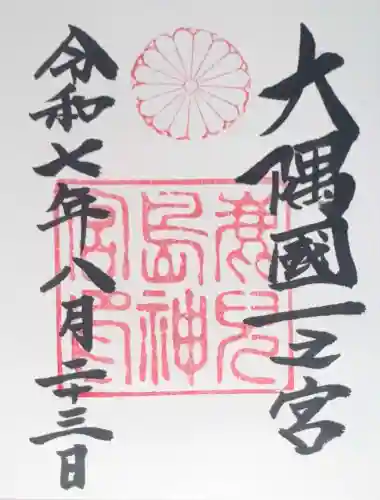 大隅國一之宮
鹿兒
島神
宮印
令和七年八月二十三日